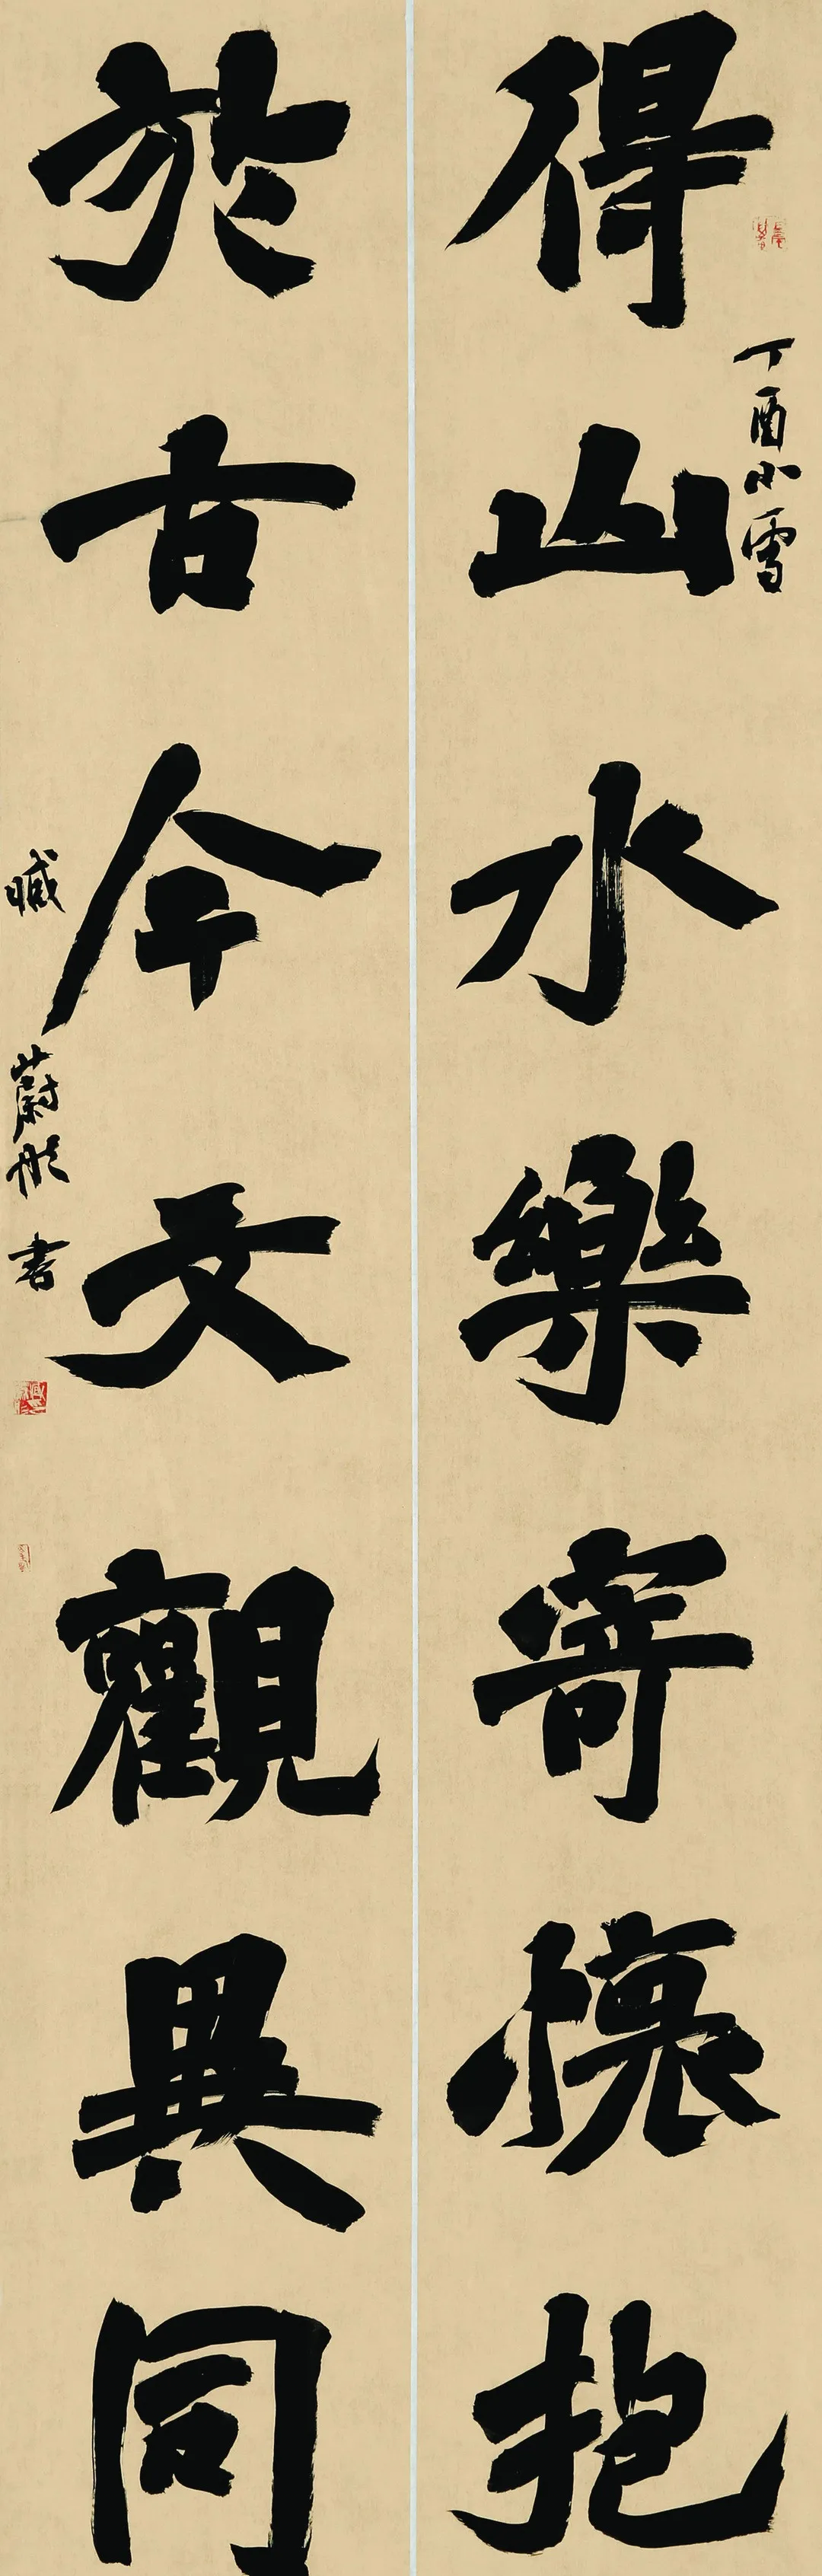 丁酉小雪
得山水樂寄懷抱
於古今文觀異同
臧蔚彤書